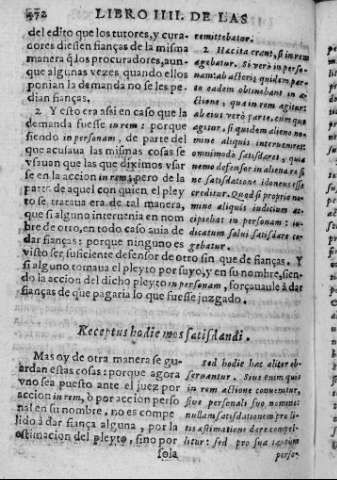 472 LIBRO IIII. DE LAS
del edito que los tutores, y cura-
dores diessen fianças de la misma
manera q̃ los procuradores, aun-
que algunas vezes quando ellos
ponian la demanda no se les pe-
dian fianças.
2 Y esto era assi en caso que la
demanda fuesse in rem: porque
siendo in personam, de parte del
que acusaua las mismas cosas se
vsauan que las que diximos vsar
se en la accion in rem, pero de la
parte de aquel con quien el pley
to se trataua era de tal manera,
que si alguno interuenia en nom
bre de otro, en todo caso auia de
dar fianças: porque ninguno es
visto ser suficiente defensor de otro sin que de fianças. Y
si alguno tomaua el pleyto por suyo, y en su nombre, sien-
do la accion del dicho pleyto in personam, forçauale à dar
fianças de que pagaria lo que fuesse juzgado.
remittebatur.
2 Hæc ita erant, si in rem
agebatur. Si verò in perso-
nam: ab actoris quidem par-
te eadem obtinebant in a-
ctione, quæ in rem agitur:
ab eius verò parte, cum quo
agitur, si quidem alieno no-
mine aliquis interueniret:
omnimodo satisdaret: quia
nemo defensor in aliena re si
ne satisdatione idoneus esse
creditur. Quod si proprio no-
mine aliquis iudicium ac-
cipiebat in personam: iu-
dicatum solui satisdare co-
gebatur.
Receptus hodie mos satisdandi.
Mas oy de otra manera se gu-
ardan estas cosas: porque agora
vno sea puesto ante el juez por
accion in rem, ò por accion perso
nal en su nombre, no es compe
lido à dar fiança alguna, por la
estimacion del pleyto, sino por
sola
sed hodie hæc aliter ob-
seruantur. Siue enim quis
in rem actione conuenitur,
siue personali suo nomine:
nullam satisdationem pro li-
tis æstimatione dare compel-
litur: sed pro sua tantum
perso-